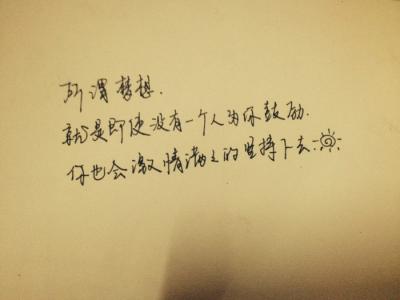 所谓梦想.
就是即使没有一个人为你鼓励.
你也会激情满满的坚持下去: